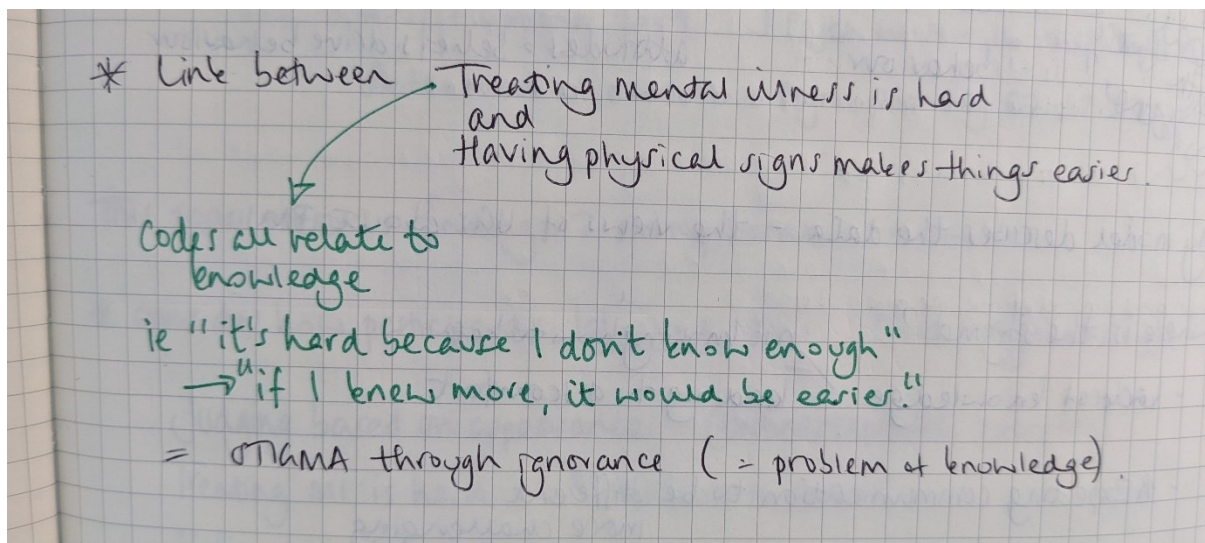 * Link between Treating mental illness is hard
and
Having physical signs makes things easier.
Codes all relate to
knowledge
ie "it's hard because I don't know enough"
→ "if I knew more, it would be easier."
= STIGMA through ignorance (= problem of knowledge).